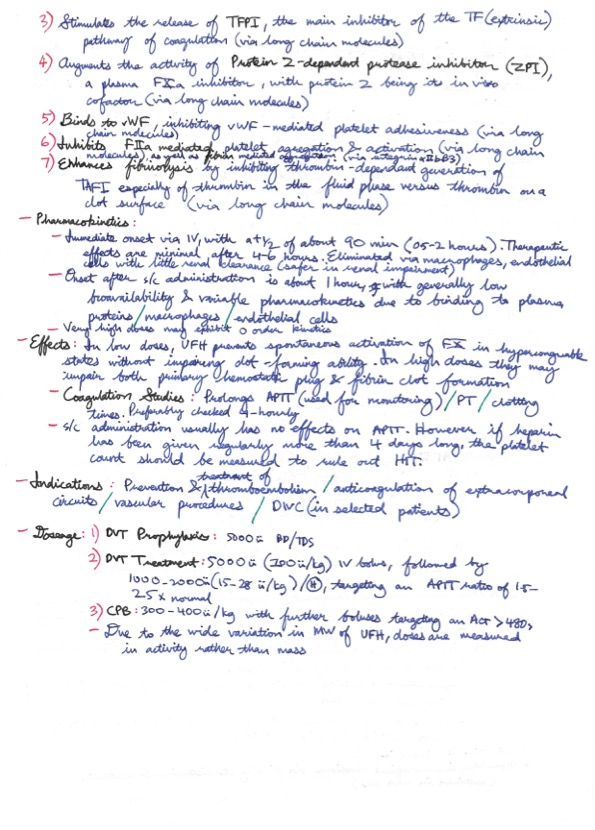 3) Stimulates the release of TFPI, the main inhibitor of the TF (extrinsic)
pathway of coagulation (via long chain molecules)
4) Augments the activity of Protein Z-dependent protease inhibitor (ZPI),
a plasma FXa inhibitor, with protein Z being its in vivo
cofactor (via long chain molecules)
5) Binds to vWF, inhibiting vWF-mediated platelet adhesiveness (via long
chain molecules)
6) Inhibits FIIa mediated platelet aggregation & activation (via long chain
molecules), as well as fibrin mediated aggregation (via integrin αIIbβ3)
7) Enhances fibrinolysis by inhibiting thrombin-dependant generation of
TAFI especially of thrombin in the fluid phase versus thrombin on a
clot surface (via long chain molecules)
- Pharmacokinetics:
- Immediate onset via IV, with a t1/2 of about 90 min (0.5-2 hours). Therapeutic
effects are minimal after 4-6 hours. Eliminated via macrophages, endothelial
cells with little renal clearance (safer in renal impairment)
- Onset after s/c administration is about 1 hour, with generally low
bioavailability & variable pharmacokinetics due to binding to plasma
proteins/macrophages/endothelial cells
- Very high doses may exhibit 0 order kinetics
- Effects: In low doses, UFH prevents spontaneous activation of FX in hypercoagulable
states without impairing clot-forming ability. In high doses they may
impair both primary hemostatic plug & fibrin clot formation
- Coagulation Studies: Prolongs APTT (used for monitoring)/PT/clotting
times. Preferably checked 4-hourly
- s/c administration usually has no effects on APTT. However if heparin
has been given regularly more than 4 days long, the platelet
count should be measured to rule out HIT.
- Indications: Prevention & treatment of thromboembolism/anticoagulation of extracorporeal
circuits/vascular procedures/DIVC (in selected patients)
- Dosage: 1) DVT Prophylaxis: 5000ü BD/TDS
2) DVT Treatment: 5000ü (100ü/kg) IV bolus, followed by
1000-2000ü (15-28 ü/kg)/H, targeting an APTT ratio of 1.5-
2.5x normal
3) CPB: 300-400ü/kg with further boluses targeting an ACT >480s
- Due to the wide variation in MW of UFH, doses are measured
in activity rather than mass